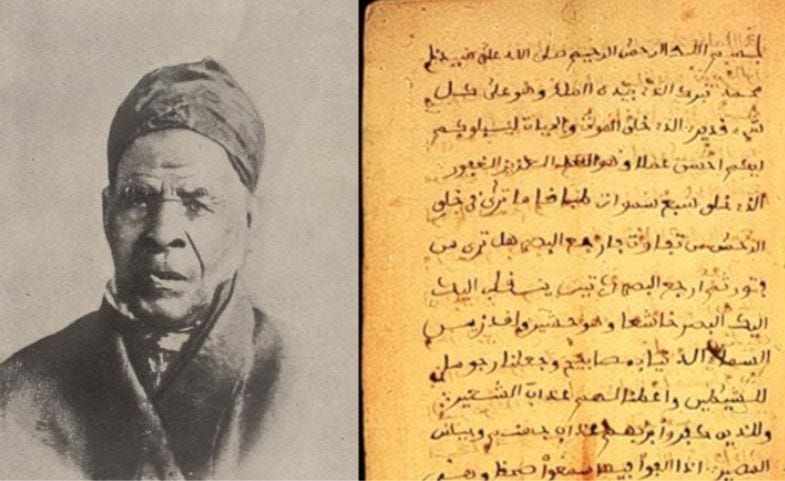 بسم الله الرحمن الرحيم صلى الله على
محمد تبرك الذي بيده الملك وهو على كل
شيء قدير الذي خلق الموت والحيات ليبلوكم
ايكم احسن عملا وهو العزيز الغفور
الذي خلق سبع سموات طباقا ما ترى في خلق
الرحمن من تفاوت فارجع البصر هل ترى من
ثم ارجع البصر ينقلب اليك
اليك البصر خاشعا وهو حسير ولقد زين
السماء الدنيا بمصابيح وجعلنا رجوما
للشيطين لهم عذاب السعير
وللذين كفروا بربهم عذاب جهنم وبيس
المصير اذا القوا فيها سمعوا